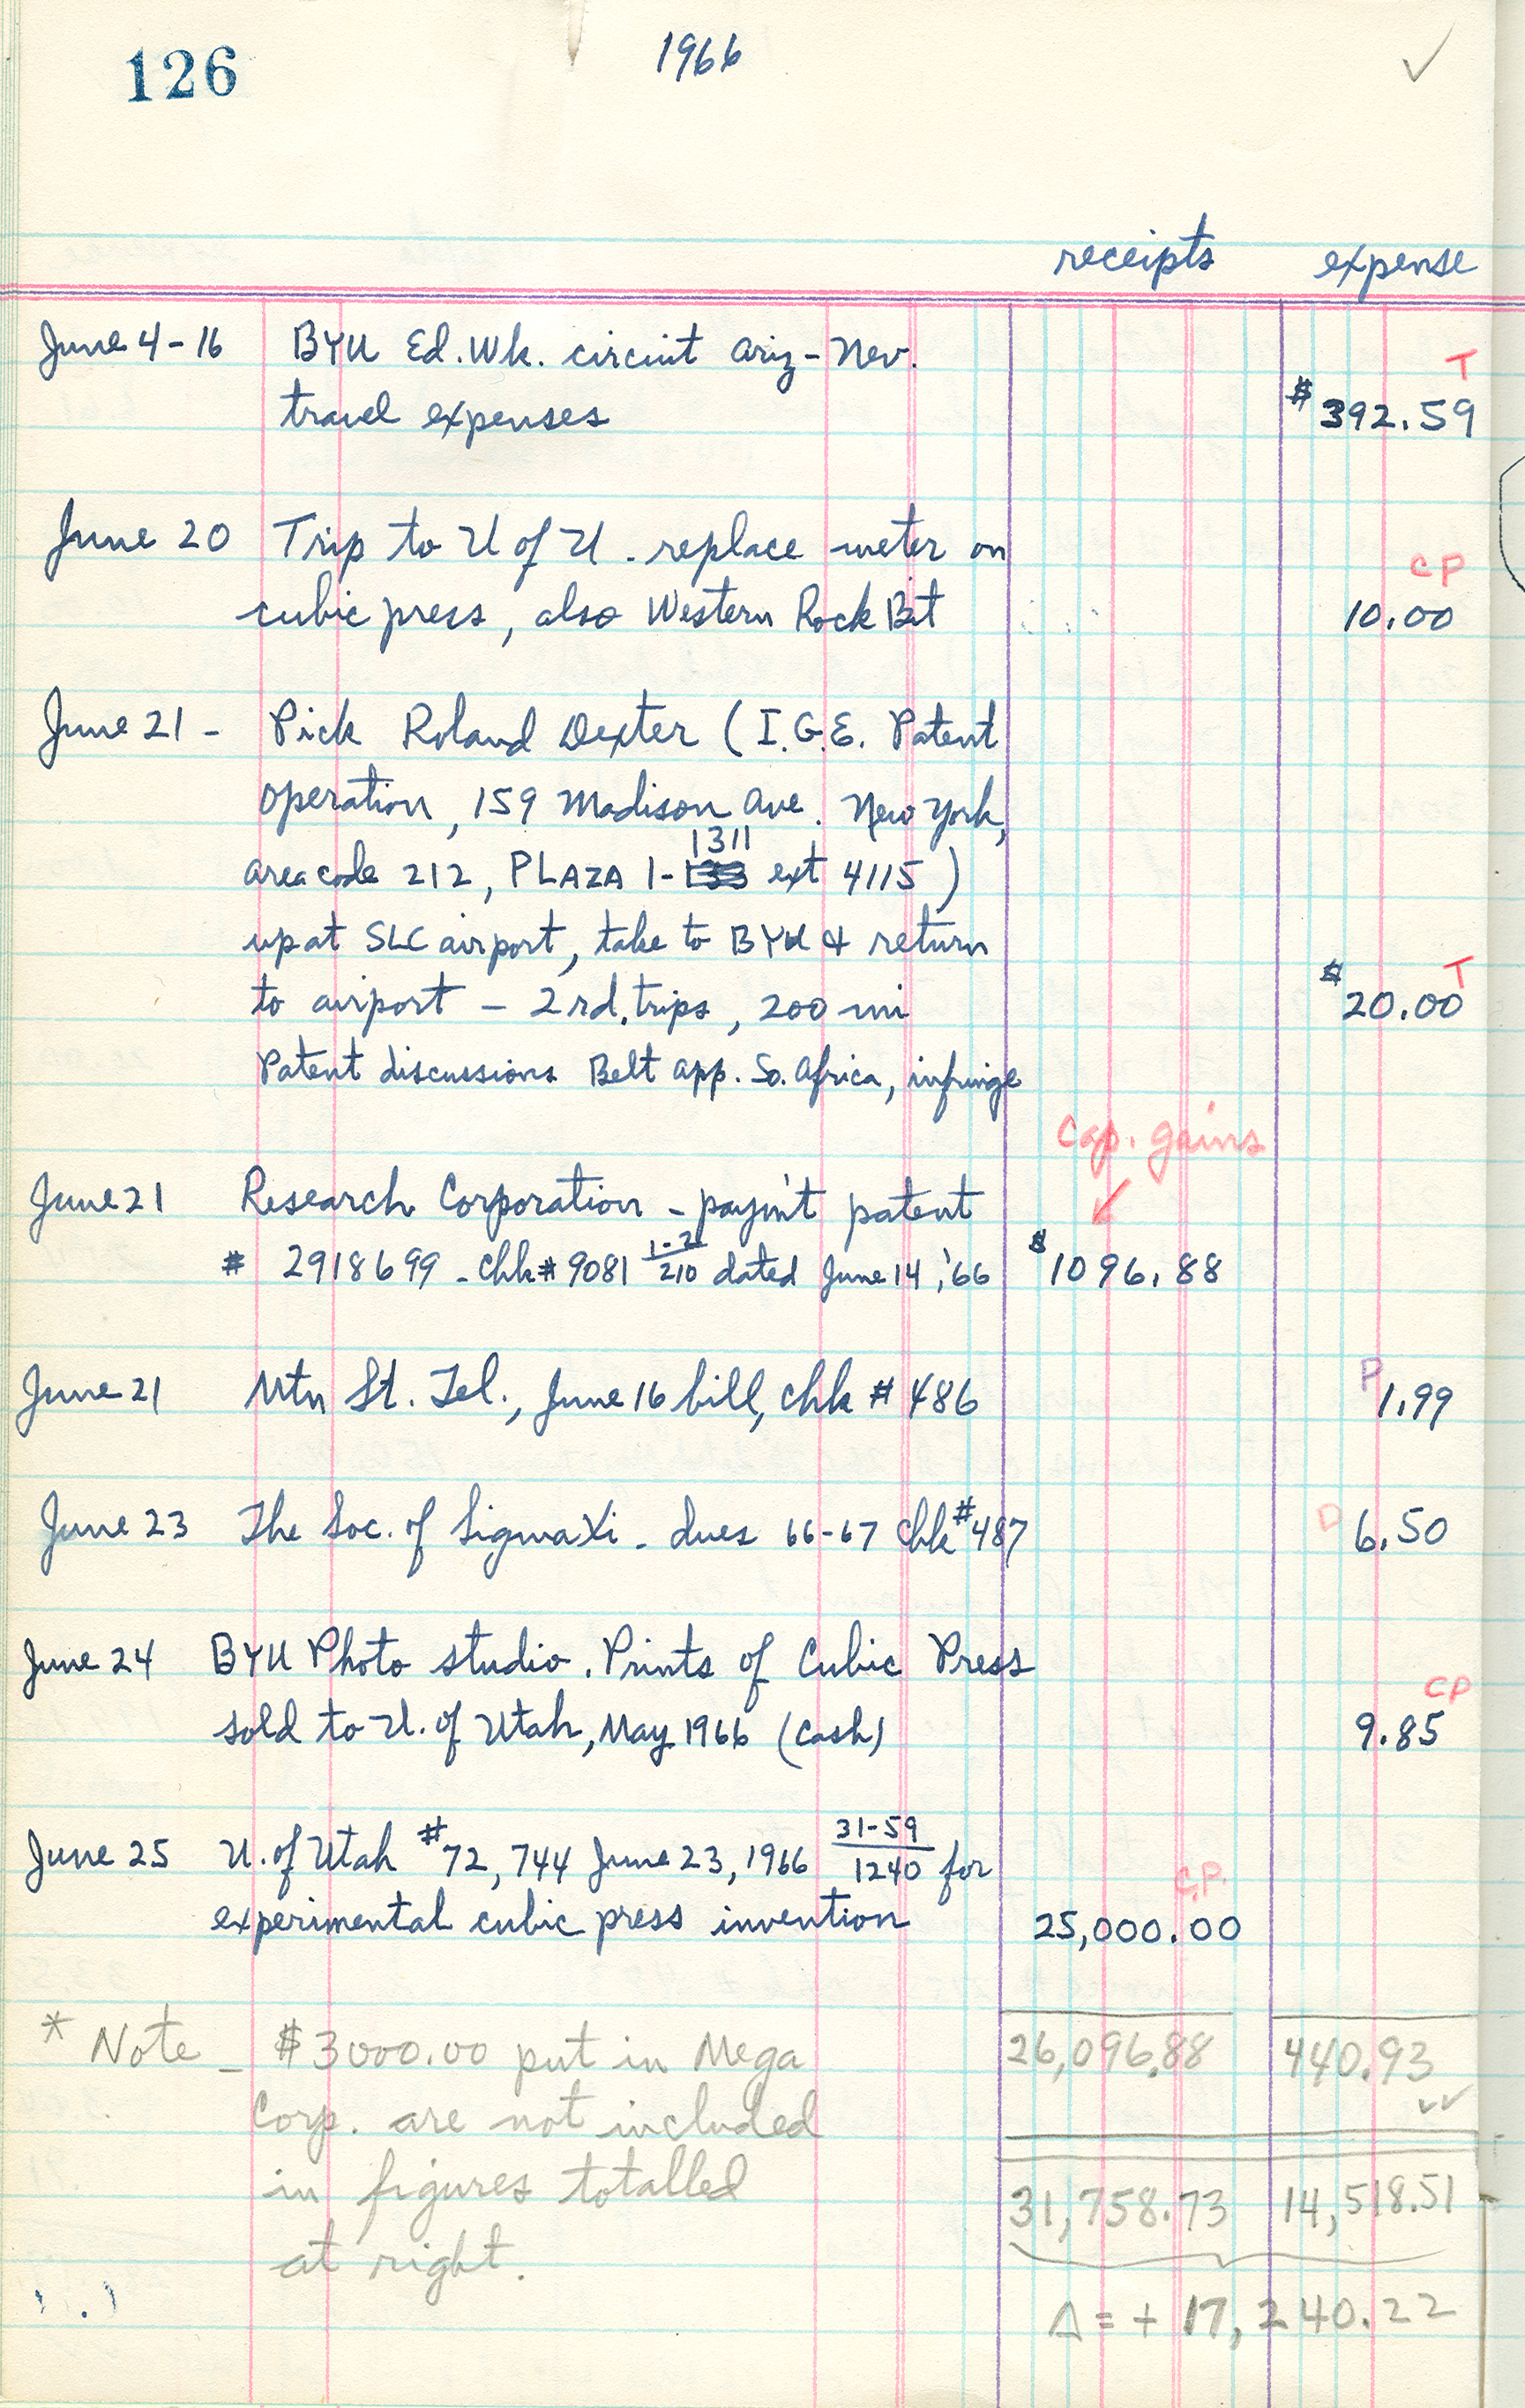 126
1966
✓
receipts expense
June 4-16 BYU Ed. Wk. circuit Ariz-Nev.
T
travel expenses $392.59
June 20 Trip to U of U - replace meter on
CP
cubic press, also Western Rock Bit 10.00
June 21 - Pick Roland Dexter (I.G.E. Patent
operation, 159 Madison Ave. New York,
1311
area code 212, PLAZA 1- ext 4115)
up at SLC airport, take to BYU & return
T
to airport - 2 rd. trips, 200 mi $20.00
Patent discussions Belt app. So. Africa, infringe
Cap. gains
June 21 Research Corporation - paym't patent
# 2918699 - chk # 9081 1-2/210 dated June 14, '66 $1096.88
June 21 Mtn St. Tel., June 16 bill, chk # 486 P 1.99
June 23 The Soc. of Sigma Xi - dues 66-67 chk #487 D 6.50
June 24 BYU Photo studio. Prints of Cubic Press
CP
sold to U. of Utah, May 1966 (Cash) 9.85
June 25 U. of Utah #72,744 June 23, 1966 31-59/1240 for
C.P.
experimental cubic press invention 25,000.00
* Note - $3000.00 put in Mega 26,096.88 440.93
Corp. are not included
in figures totalled 31,758.73 14,518.51
at right.
Δ = + 17,240.22